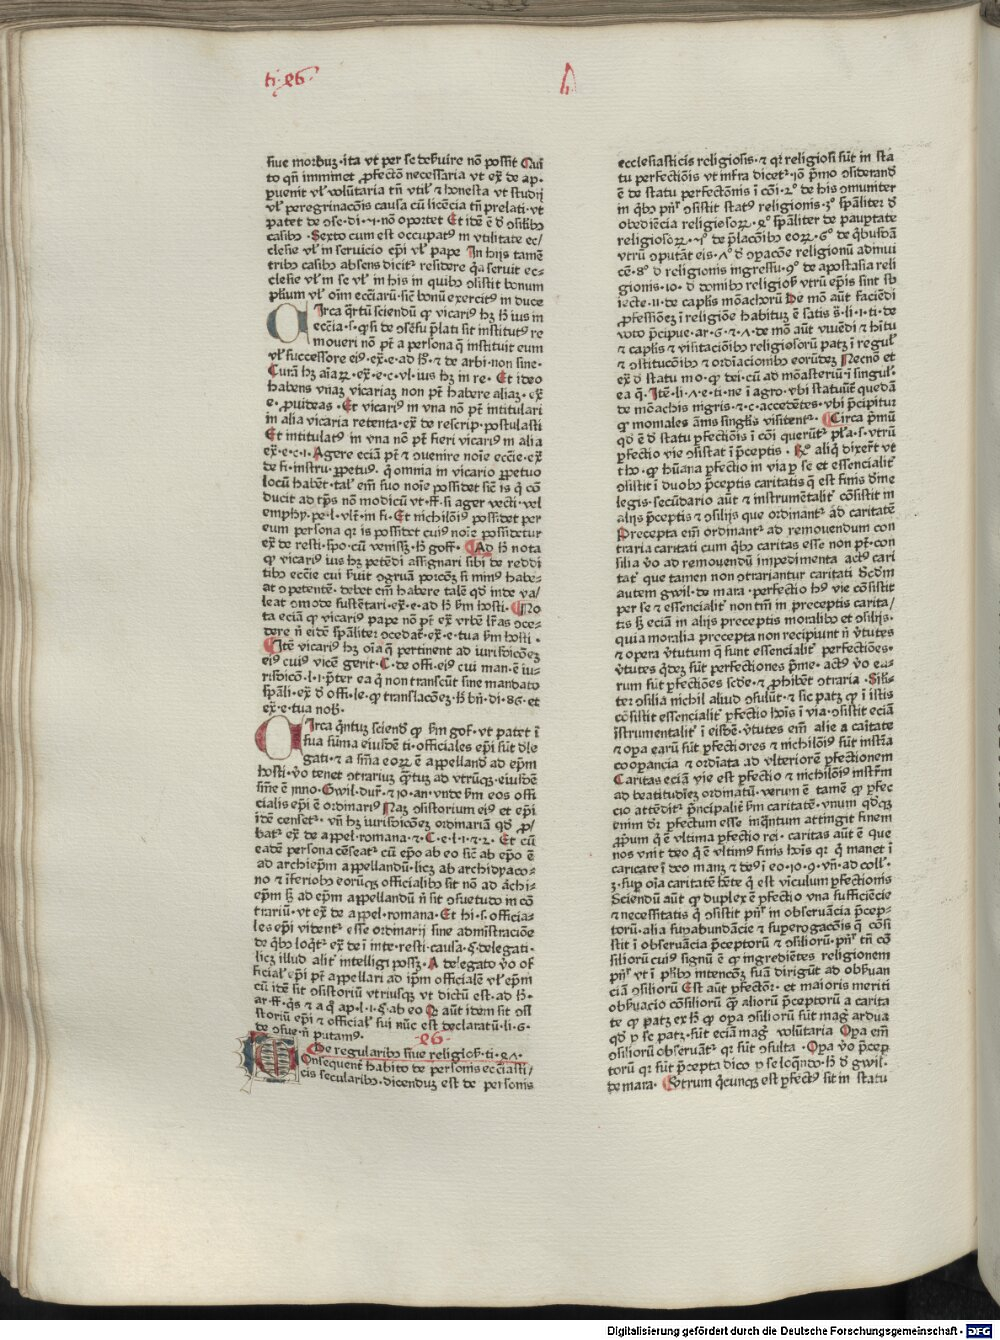 ti · 26 ·
h
siue morbuz · ita vt per se deßuire nō possit Qui
to qn̄ imminet ꝓfectō necessaria vt ex̄ de ap ·
puenit vl̓ volūtaria tn̄ vtil̓ ⁊ honesta vt studij
vl̓ peregrinacōis causa cū licēcia tn̄ prelati · vt
patet de ꝯse · di · ⁊ · nō oportet Et idē ē ꝺ ꝯsilibꝫ
casibꝫ · Sexto cum est occupatꝰ in vtilitate ec/
clesie vl̓ in seruicio ep̄i vl̓ pape In hijs tamē
tribꝫ casibꝫ absens dicitᷣ residere q̇a seruit ec-
clesie vl̓ in se vl̓ in his in quibꝫ ꝯsistit bonum
Irca q̓rtū sciendū ꝙ vicariꝰ hꝫ ħ ius in
moueri non pt̄ a persona q̄ instituit eum
vl̓ successore eiꝰ · ex̄ · e · ad ħ · ⁊ de arbi · non sine ·
Curā hꝫ aīaꝝ · ex̄ · e · c · vl̓ · ius hꝫ in re · Et ideo
habens vnaꝫ vicariaꝫ non pt̄ habere aliaꝫ · ex̄
e · ꝓuideas · Et vicariꝰ in vna nō pt̄ intitulari
in alia vicaria retenta · ex̄ de rescrip · postulasti
Et intitulatꝰ in vna nō pt̄ fieri vicariꝰ in alia
ex̄ · e · c · i · Agere eciā pt̄ ⁊ ꝯuenire noīe ecc̄ie · ex̄
de fi · instru · ꝑpetuꝰ · q̇ omnia in vicario ꝑpetuo
locū habēt · tal̓ em̄ suo noīe possidet sic̄ is q̇ cō
ducit ad tp̄s nō modicū vt · ff · si ager vecti · vel
emphy · pe · l · vlt̄ · in fi · Et nichilōiꝰ possidet per
eum persona qꝛ is possidet cuiꝰ noīe possidetur
ex̄ de resti · spo · cū venissꝫ · ħ goff · Ad ħ nota
ꝙ vicariꝰ ius hꝫ petēdi assignari sibi de reddi
tibꝫ ecc̄ie cui ßuit ꝯgruā porcōꝫ si minꝰ habe-
at ꝯpetentē · debet em̄ habere talē qd̓ inde va/
leat ꝯmode sustentari · ex̄ · e · ad ħ ßm hosti · No
ta eciā ꝙ vicariꝰ pape nō pt̄ ex̄ vrbē lr̄as ꝯce-
dere n̄ eidē spāliter ꝯcedatᷣ · ex̄ · e · tua ßm hosti ·
Itē vicariꝰ hꝫ oīa q̄ pertinent ad iurisdicōeꝫ
eiꝰ cuiꝰ vicē gerit · C · de offi · eiꝰ cui man · ē iu-
risdicō · l · i · p̄ter ea q̄ non transeūt sine mandato
spāli · ex̄ ꝺ offi · le · ꝙ translacōeꝫ · ħ bn̄ · di · 86 · et
ex̄ · e · tua nob̓ ·
Irca q̇ntuꝫ sciendꝫ ꝙ ßm gof · vt patet ī
sua sūma eiusdē ti · officiales ep̄i sūt dle
gati · ⁊ a sn̄ia eoꝝ ē appellandū ad ep̄m
hosti · v̊o tenet ꝯtrariuꝫ
cialis ep̄i ē ordinariꝰ Naꝫ ꝯsistorium eiꝰ et ep̄i
idē censetᷣ · vn̄ hꝫ iurisdicōeꝫ ordinariā
batᷣ ex̄ de appel · romana · ⁊ · C · e · l · i · ⁊ · 2 · Et cū
eadē persona cēseatᷣ cū ep̄o ab eo sic̄ ab ep̄o ē
ad archiep̄m appellandū · licꝫ ab archidyaco-
no ⁊ īferiobꝫ eorūqꝫ officialibꝫ sit nō ad ar̄chi-
ep̄m sꝫ ad ep̄m appellandū n̄ sit ꝯsuetudo in cō
trariū · vt ex̄ de appel · romana · Et hi · s · officia-
les ep̄i vident̓ esse ordinarij sine admīstracōe
de q̇bꝫ loq̓tᷣ · ex̄ de ī inte · resti · causa · § · delegati ·
licꝫ illud alit̓ intelligi possꝫ · A delegato v̊o of
ficial̓ ep̄i pt̄ appellari ad ip̄m officialē vl̓ ep̄m
cū itē sit ꝯsistoriū vtriusqꝫ vt dictū est · ad ħ ·
storiū ep̄i ⁊ official̓ sui nūc est declaratū · li · 6 ·
de ꝯsue · n̄ putamꝰ ·
· 26 ·
De regularibꝫ siue religios̓ · ti · 27 ·
Onsequent̓ habito de personis ecc̄iasti/
cis secularibꝫ · dicenduꝫ est de personis
ecclesiasticis religiosis · ⁊ qꝛ religiosi sūt in sta
tu perfectiōis vt infra dicetᷣ · iō p̄mo ꝯsiderandū
ē de statu perfectōnis ī cōi · 2º de his ꝯmuniter
in q̇bꝫ pn̄r̓ ꝯsistit statꝰ religionis · 3º spāliter ꝺ
obediēcia religiosoꝝ · 4º spāliter de paupertate
religiosoꝝ · 5º de p̄lacōibꝫ eoꝝ · 6º de q̇busdā
vtrū ꝯputāt eis · 7º ꝺ ꝯpacōe religionū adinui
cē · 8º ꝺ religionis ingressu · 9º de apostasia reli
gionis · 10 · ꝺ domibꝫ religios̓ vtrū ep̄is sint sb̄
iecte · 11 · de capl̓is mōachorū De mō aūt faciēdi
ꝓfessiōeꝫ ī religiōe habituꝫ ē satis s̄ · li · i · ti · de
voto p̄cipue · ar · 6 · ⁊ · 7 · de mō aūt viuēdi ⁊ hītu
⁊ capl̓is ⁊ visitaciōibꝫ religiosorū patꝫ ī regul̓
⁊ ꝯstitucōibꝫ ⁊ ordīacionibꝫ eorūdeꝫ Necnō et
ex̄ ꝺ statu mo · ꝙ dei · cū ad mōasteriū · ī singul̓ ·
ea q̄ · Itē · li · 7 · e · ti · ne ī agro · vbi statuūt̓ quedā
de mōachis nigris · ⁊ · c · accedētes · vbi p̄cipitur
ꝙ moniales ān̄is singl̓is visitentᷣ · Circa p̄mū
qd̓ ē ꝺ statu ꝑfectiōis ī cōi querūtᷣ pl̓a · s · vtrū
ꝑfectio vie ꝯsistat ī p̄ceptis · Rº aliq̇ dixer̄t vt
tho · ꝙ hūana ꝑfectio in via ꝑ se et essencialit̓
ꝯsistit ī duobꝫ p̄ceptis caritatis q̄ est finis diīne
legis · secūdario aūt ⁊ instrumētalit̓ cōsistit in
alijs p̄ceptis ⁊ ꝯsilijs que ordinantᷣ ad caritatē
Precepta em̄ ordinantᷣ ad remouendum con
traria caritati cum q̇bꝫ caritas esse non pt̄ · con
silia v̊o ad remouendū impedimenta actꝰ cari
tat̓ que tamen non ꝯtrariantur caritati Scd̓m
autem gwil · de mara · perfectio hꝰ vie cōsistit
per se ⁊ essencialit̓ non tm̄ in preceptis carita/
tis sꝫ eciā in alijs preceptis moralibꝫ et ꝯsilijs ·
quia moralia precepta non recipiunt n̄ v̓tutes
⁊ opera v̓tutum q̄ sunt essencialit̓ perfectiōes ·
v̓tutes qdeꝫ sūt perfectiones p̄me · actꝰ v̊o ea-
rum sūt ꝑfectiōes scd̓e · ⁊ ꝓhibēt ꝯtraria · Sil̓r-
ter ꝯsilia nichil aliud ꝯsulūt · ⁊ sic patꝫ ꝙ ī istis
cōsistit essencialit̓ ꝑfectio hoīs ī via · ꝯsistit eciā
īstrumentalit̓ ī eisdē · v̓tutes em̄ alie a caītate
⁊ oꝑa earū sūt ꝑfectiores ⁊ nichilōiꝰ sūt instr̄a
cooꝑancia ⁊ ordīata ad vlteriorē ꝑfectionem
Caritas eciā vie est ꝑfectio ⁊ nichilōiꝰ instr̄m
ad beatitudīeꝫ ordinatū · verum ē tamē ꝙ ꝑfec
cio attēditᷣ p̄ncipalit̓ ßm caritatē · vnum qd̓qꝫ
enim dr̄ ꝑfectum esse inq̇ntum attingit finem
ꝓp̄um q̇ ē vltima ꝑfectio rei · caritas aūt ē que
nos vnit deo q̇ ē vltimꝰ finis hoīs qꝛ q̇ manet ī
caritate ī deo manꝫ ⁊ deꝰ ī eo · io · 9 · vn̄ · ad coll̓ ·
3 · sup̄ oīa caritatē hēte q̇ est vinculum ꝑfectionis
Sciendū aūt ꝙ duplex ē ꝑfectio vna sufficiēcie
⁊ necessitatis q̄ ꝯsistit pn̄r̓ in obseruācia p̄cep-
torū · alia suꝑabundācie ⁊ suꝑerogacōis q̄ cōsi
stit ī obseruācia p̄ceptorū ⁊ ꝯsiliorū · pn̄r̓ tn̄ cō
siliorū cuiꝰ signū ē ꝙ ingrediētes religionem
ciā ꝯsiliorū Est aūt ꝑfectorᷣ · et maioris meriti
obßuacio cōsiliorū ꝙ̄ aliorū p̄ceptorū a carita
te ꝙ patꝫ ex ħ ꝙ oꝑa ꝯsiliorū sūt mag̓ ardua
qd̓ ꝑ se patꝫ · sūt eciā mag̓ volūtaria Oꝑa em̄
ꝯsiliorū obseruātᷣ qꝛ sūt ꝯsulta · Oꝑa v̊o p̄cep
torū qꝛ sūt p̄cepta dico ꝑ se loq̄ndo · ħ ꝺ gwil ·
de mara · Vtrum q̇cunqꝫ est ꝑfectꝰ sit in statu
Digitalisierung gefördert durch die Deutsche Forschungsgemeinschaft - DFG